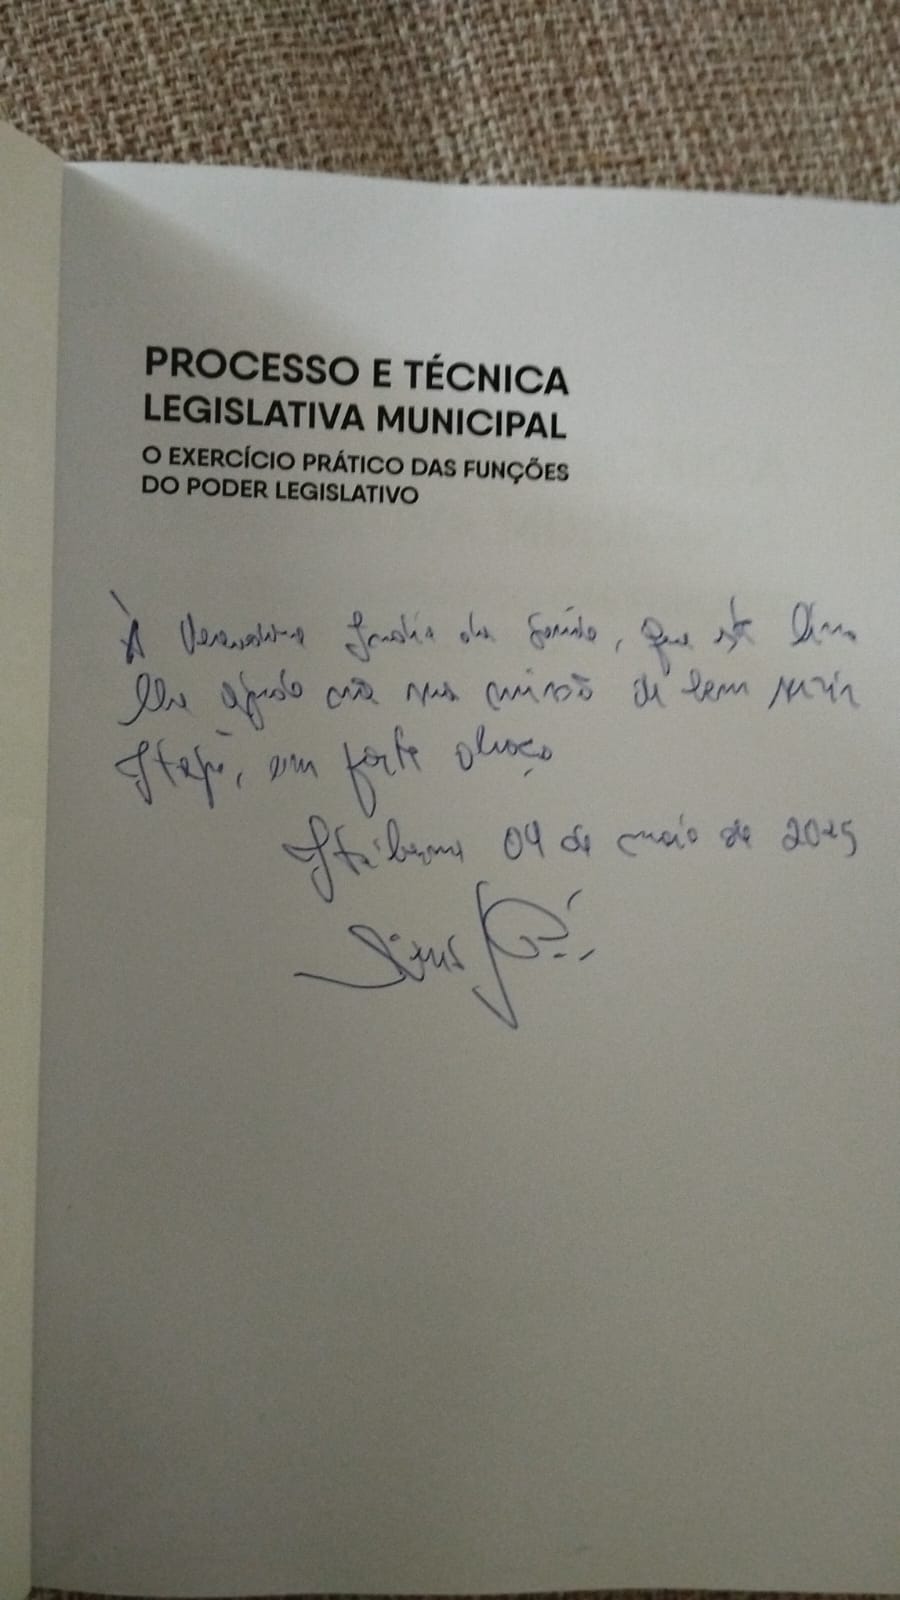 PROCESSO E TÉCNICA
LEGISLATIVA MUNICIPAL
O EXERCÍCIO PRÁTICO DAS FUNÇÕES
DO PODER LEGISLATIVO
À Vereadora da, que este livro
lhe missão de bem servir
Itapé, um forte abraço
04 de maio de 2025